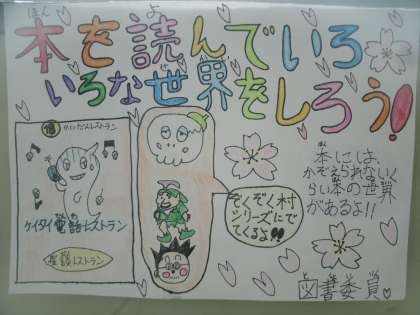 本を読んでいろ
いろな世界をしろう!
かいだんレストラン
ケイタイ電話レストラン
怪談レストラン
ぞくぞく村
シリーズにで
てくるよ!!
本には、
かぞえられないく
らい本の世界
があるよ!!
図書委員